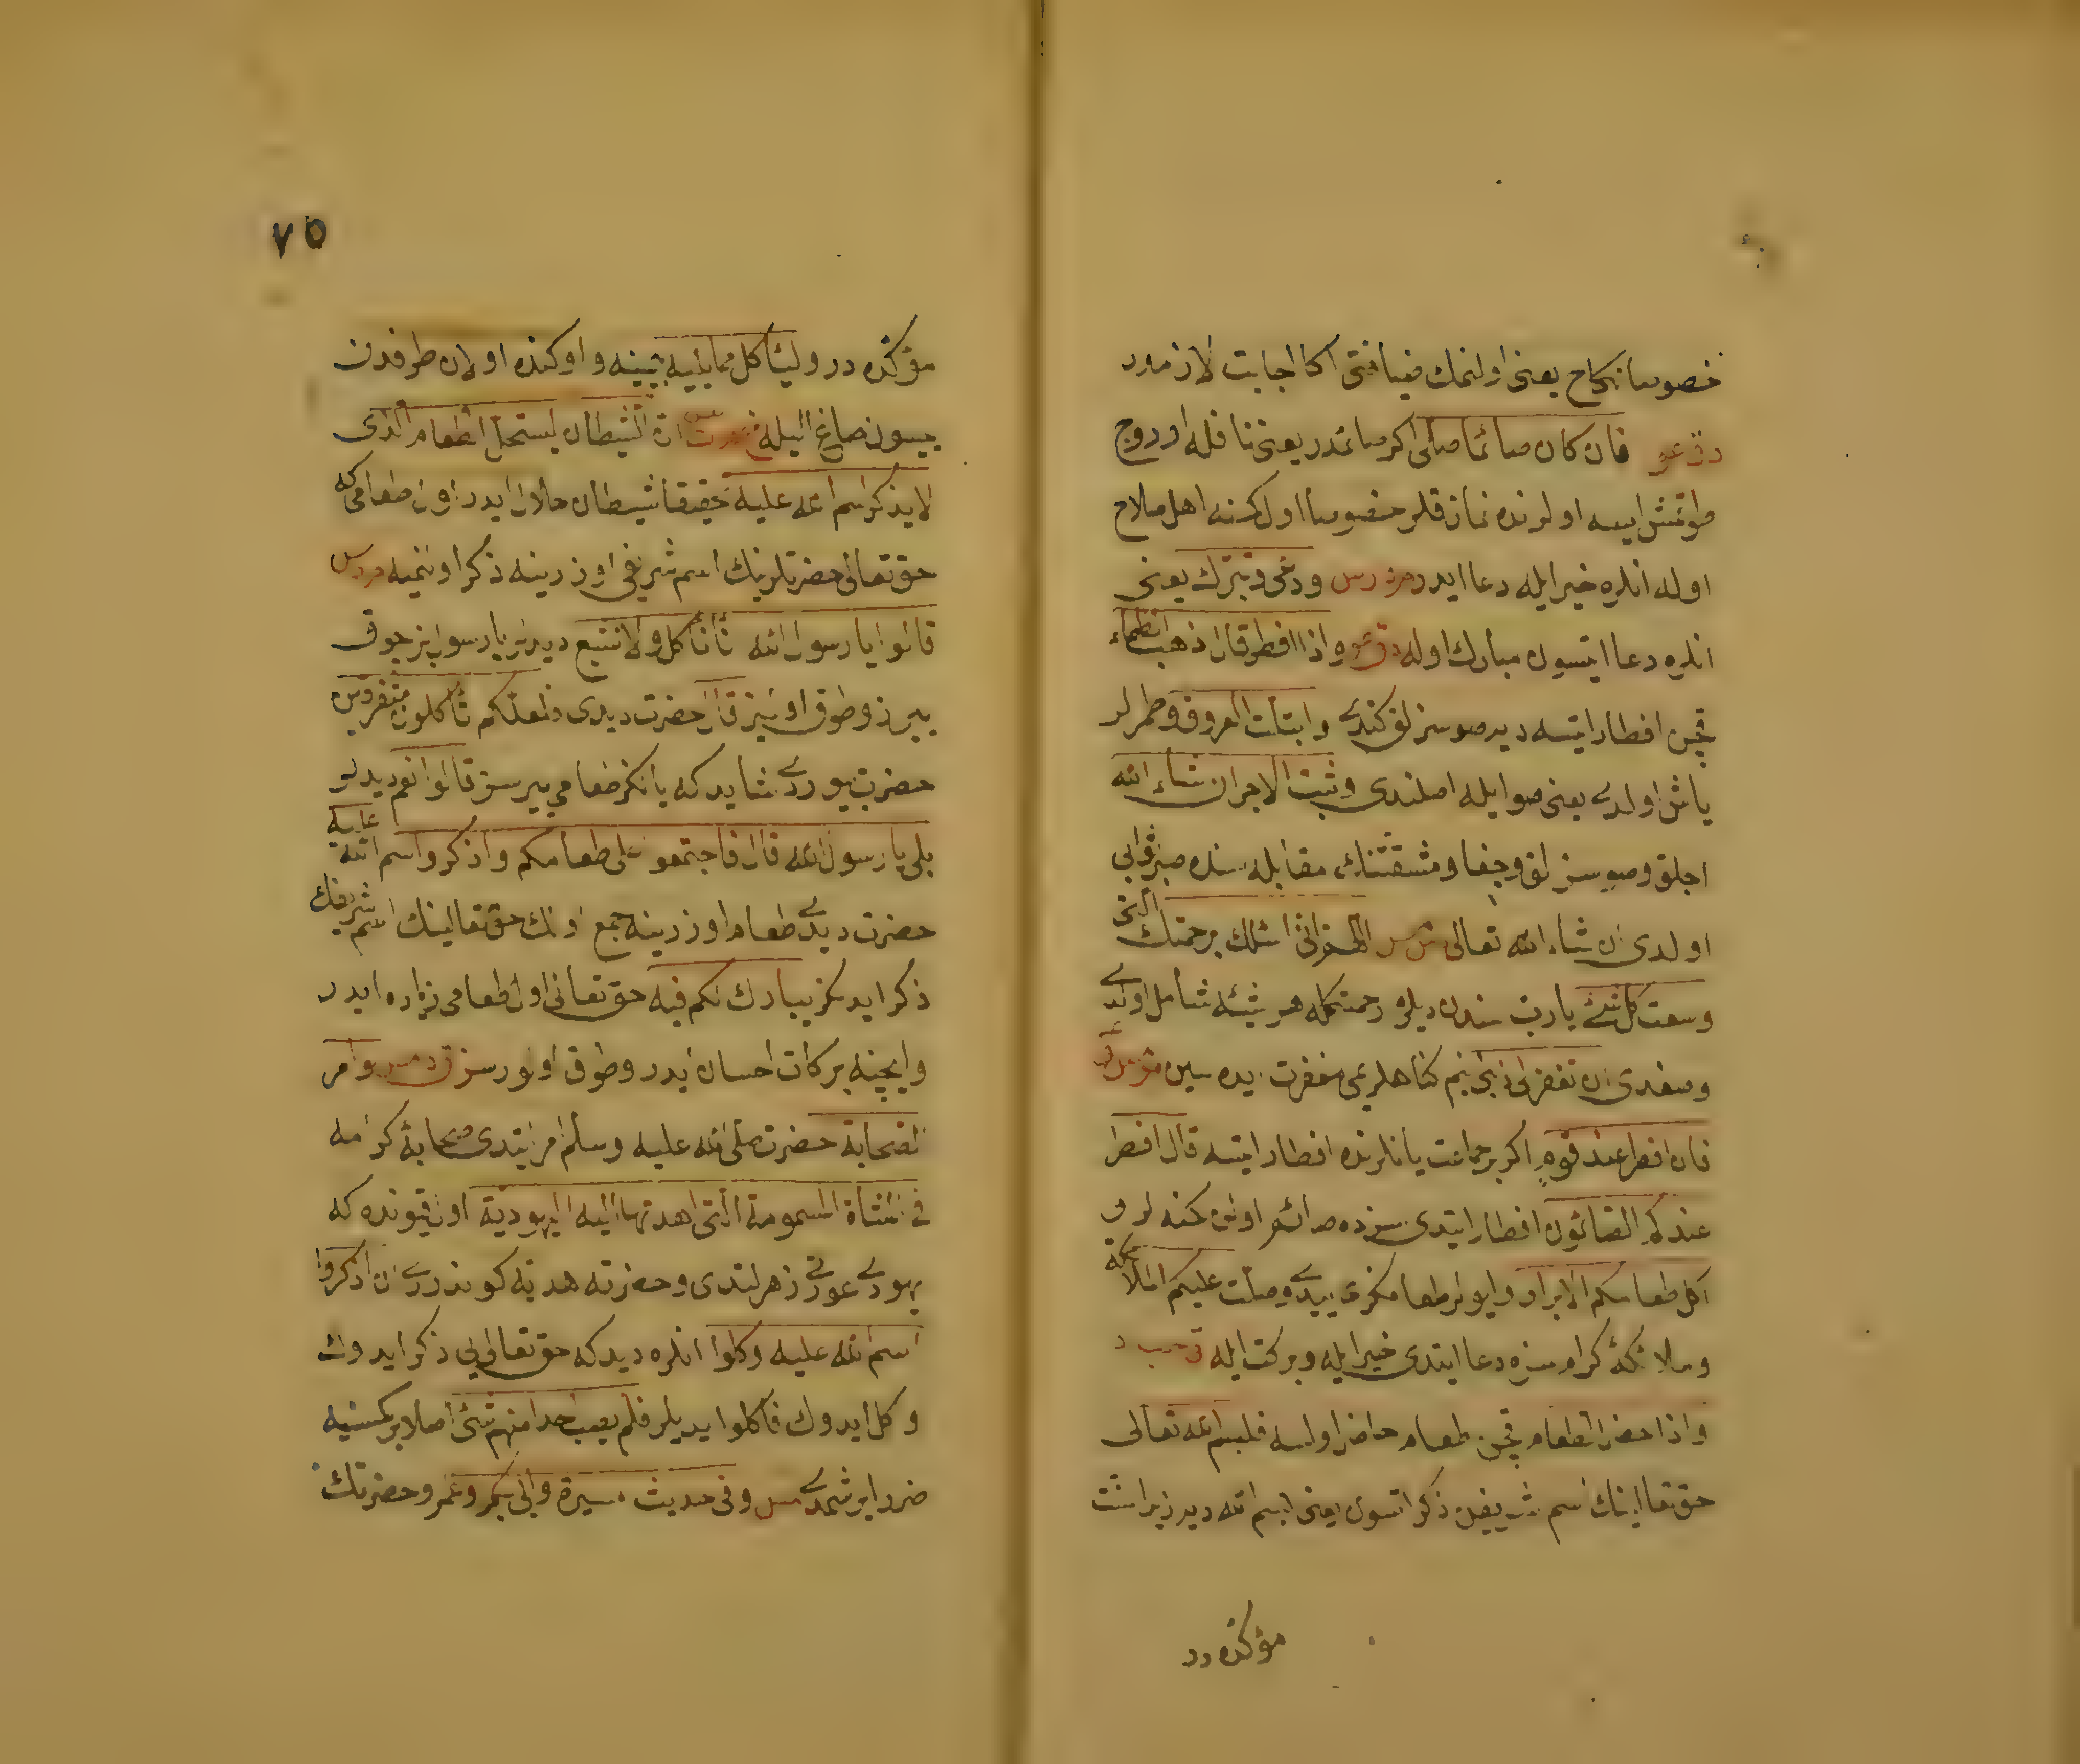 خصوصا نكاح يعنى اولنمك ضيافتى اكا اجابت لازمدر
فان كان صائما صلى اكر صائمدر يعنى نافله اوروج
طوتمش ايسه اولرنده نماز قلر خصوصا اول كسنه اهل صلاح
اوله انلره خير ايله دعا ايدر ودعى وتبرك يعنى
انلره دعا ايتسون مبارك اوله واذا افطر قال ذهب الظماء
قچن افطار ايتسه دير صوسزلق كندى وابتلت العروق وطمرلر
ياش اولدى يعنى صو ايله اصلندى وثبت الاجر ان شاء الله
اجلق وصوسزلق وجفا ومشقتنك مقابله سنده صبر ثوابى
اولدى ان شاء الله تعالى اللهم انى اسئلك برحمتك التى
وسعت كل شئ يارب سندن ديلرم رحمتكله هر شيئه شامل اولدى
وصغدى ان تغفر لى ذنبى بنم كناهلريمى مغفرت ايده سين
فان افطر عند قوم اكر بر جماعت يانلرنده افطار ايتسه قال افطر
عندكم الصائمون افطار ايتدى سزده صائملر اولن كسنه لر و
اكل طعامكم الابرار وايولر طعامكزى ييدى وصلت عليكم الملائكة
وملائكۀ كرام سزه دعا ايتدى خير ايله وبركت ايله
واذا حضر الطعام قچن طعام حاضر اولسه فليسم الله تعالى
حق تعالينك اسم شريفن ذكر اتسون يعنى بسم الله دير زيرا سنت
مؤكده در
٧٥
مؤكده در وليأكل مما يليه يينه و اوكنده اولان طرفدن
ييسون صاغ اليله ان الشيطان ليستحل الطعام الذى
لا يذكر اسم الله عليه حقيقا شيطان حلال ايدر اول طعامى كه
حق تعالى حضرتلرينك اسم شريفى اوزرينه ذكر اولنميه
قالوا يا رسول الله انا نأكل ولا نشبع ديديلر يا رسول بز چوق
ييرز وطوق اولمز قال حضرت ديدى فلعلكم تأكلون متفرقين
حضرت بيوردى شايد كه يالكز طعامى ييرسز قالوا نعم ديديلر
بلى يا رسول الله قال فاجتمعو على طعامكم واذكروا اسم الله عليه
حضرت ديدى طعام اوزرينه جمع اولك حق تعالينك اسم شريفك
ذكر ايدكز يبارك لكم فيه حق تعالى اول طعامى زياده ايدر
وايچنه بركات احسان ايدر وطوق اولورسز وامر
الصحابة حضرت صلى الله عليه وسلم امر ايتدى صحابۀ كرامه
فى الشاة المسمومة التى اهدتها اليه اليهودية اول قيونده كه
يهودى عورتى زهرلندى وحضرته هديه كوندردى ان اذكروا
اسم الله عليه وكلوا انلره ديدكه حق تعالى يى ذكر ايدوك
وكل ايدوك فاكلوا يديلر فلم يصب احدا منهم شئ اصلا بر كمسنيه
ضرر ايرشمدى وفى حديث مسيره والى بكر وعمر وحضرتك